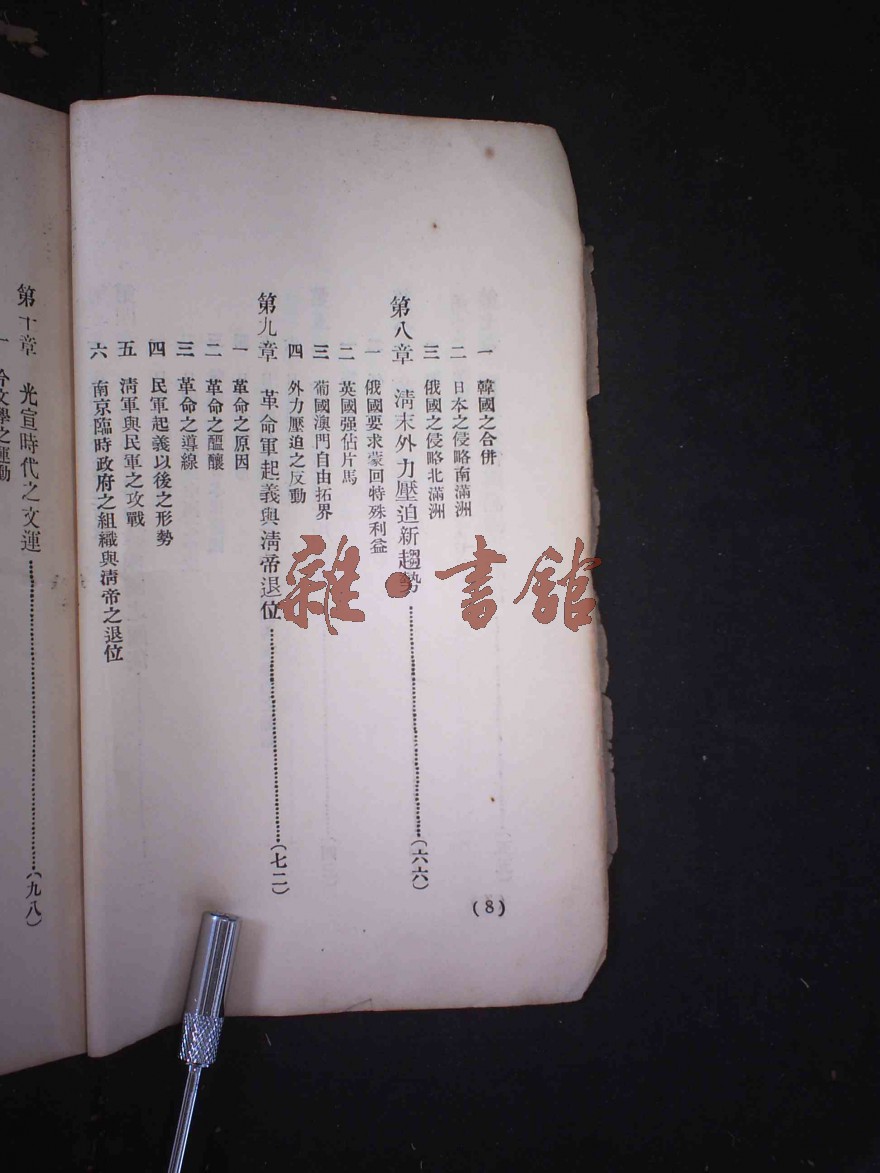 一 韓國之合併
二 日本之侵略南滿洲
三 俄國之侵略北滿洲
第八章 淸末外力壓迫新趨勢……(六六)
一 俄國要求蒙回特殊利益
二 英國强佔片馬
三 葡國澳門自由拓界
四 外力壓迫之反動
第九章 革命軍起義與淸帝退位……(七二)
一 革命之原因
二 革命之醞釀
三 革命之導線
四 民軍起義以後之形勢
五 淸軍與民軍之攻戰
六 南京臨時政府之組織與淸帝之退位
(8)
第十章 光宣時代之文運……(九八)
文學之運動
雜·書館